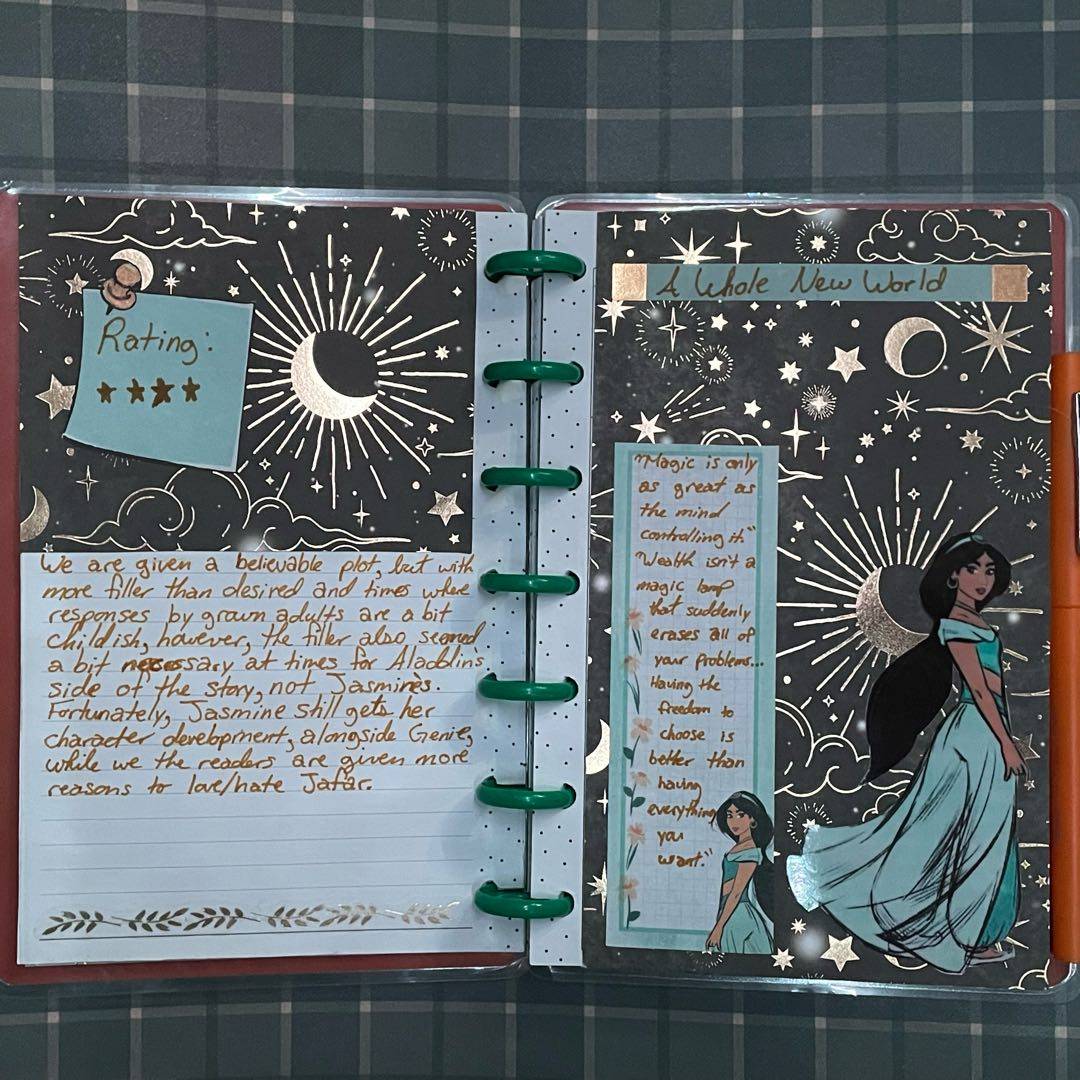 Rating:
★ ★ ★ ★
We are given a believable plot, but with
more filler than desired and times where
responses by grown adults are a bit
childish, however, the filler also seemed
a bit necessary at times for Aladdin's
side of the story, not Jasmine's.
Fortunately, Jasmine still gets her
character development, alongside Genie,
while we the readers are given more
reasons to love/hate Jafar.
A Whole New World
"Magic is only
as great as
the mind
controlling it."
"Wealth isn't a
magic lamp
that suddenly
erases all of
your problems...
Having the
freedom to
choose is
better than
having
everything
you
want."